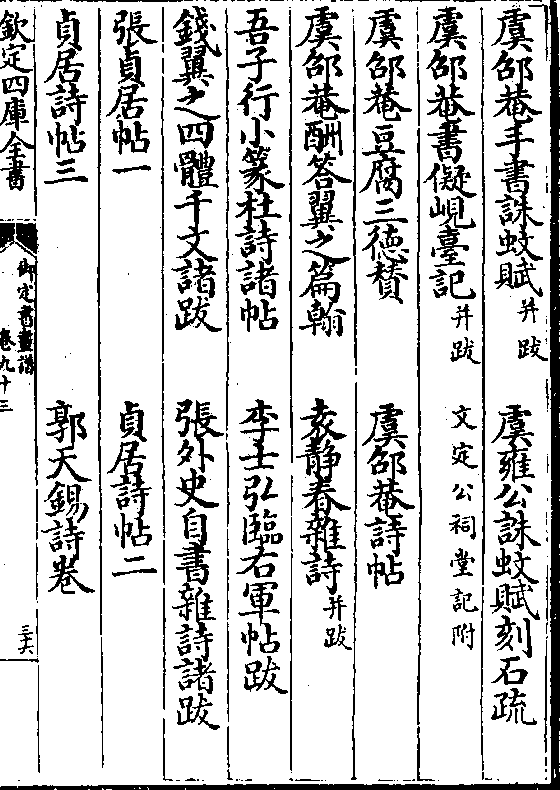 虞邵菴手書誅蚊賦并跋 虞雍公誅蚊賦刻石疏
虞邵菴書儗峴臺記并跋 文定公祠堂記附
虞邵菴豆腐三德賛 虞邵菴詩帖
虞邵菴酬答翼之篇翰 袁靜春雜詩并跋
吾子行小篆杜詩諸帖 李士弘臨右軍帖跋
錢翼之四體千文諸跋 張外史自書雜詩諸跋
張貞居帖一 貞居詩帖二
貞居詩帖三 郭天錫詩卷
欽定四庫全書
御定書畫譜
卷九十三
三六